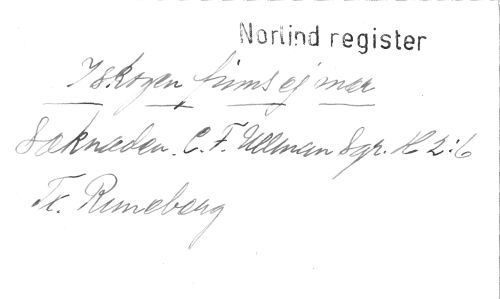 Norlind register
I skogen finns ej mer
Saknaden. C. F. Ullman Sgr. H 2:6
Tx. Runeberg